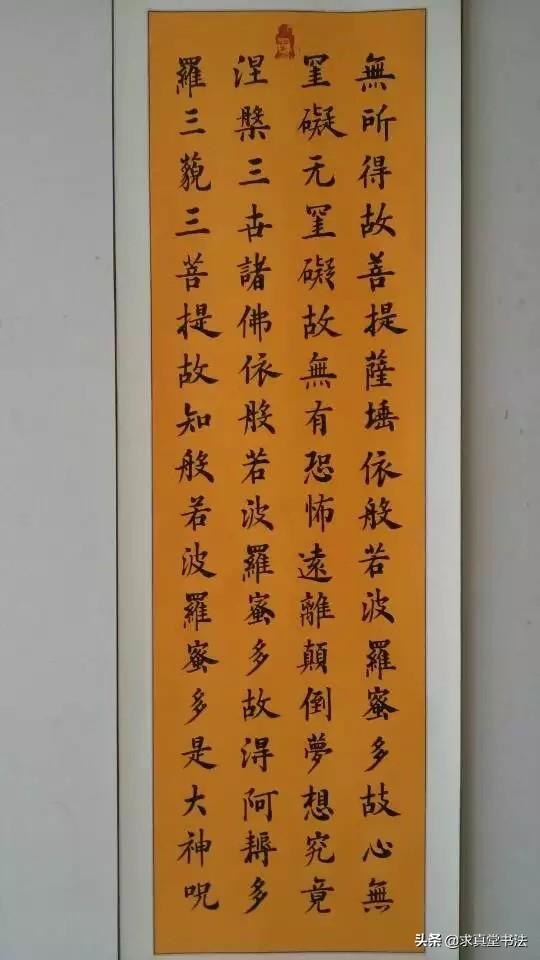 無所得故菩提薩埵依般若波羅蜜多故心無
罣礙无罣礙故無有恐怖遠離顛倒夢想究竟
涅槃三世諸佛依般若波羅蜜多故得阿耨多
羅三藐三菩提故知般若波羅蜜多是大神呪
头条 @求真堂书法